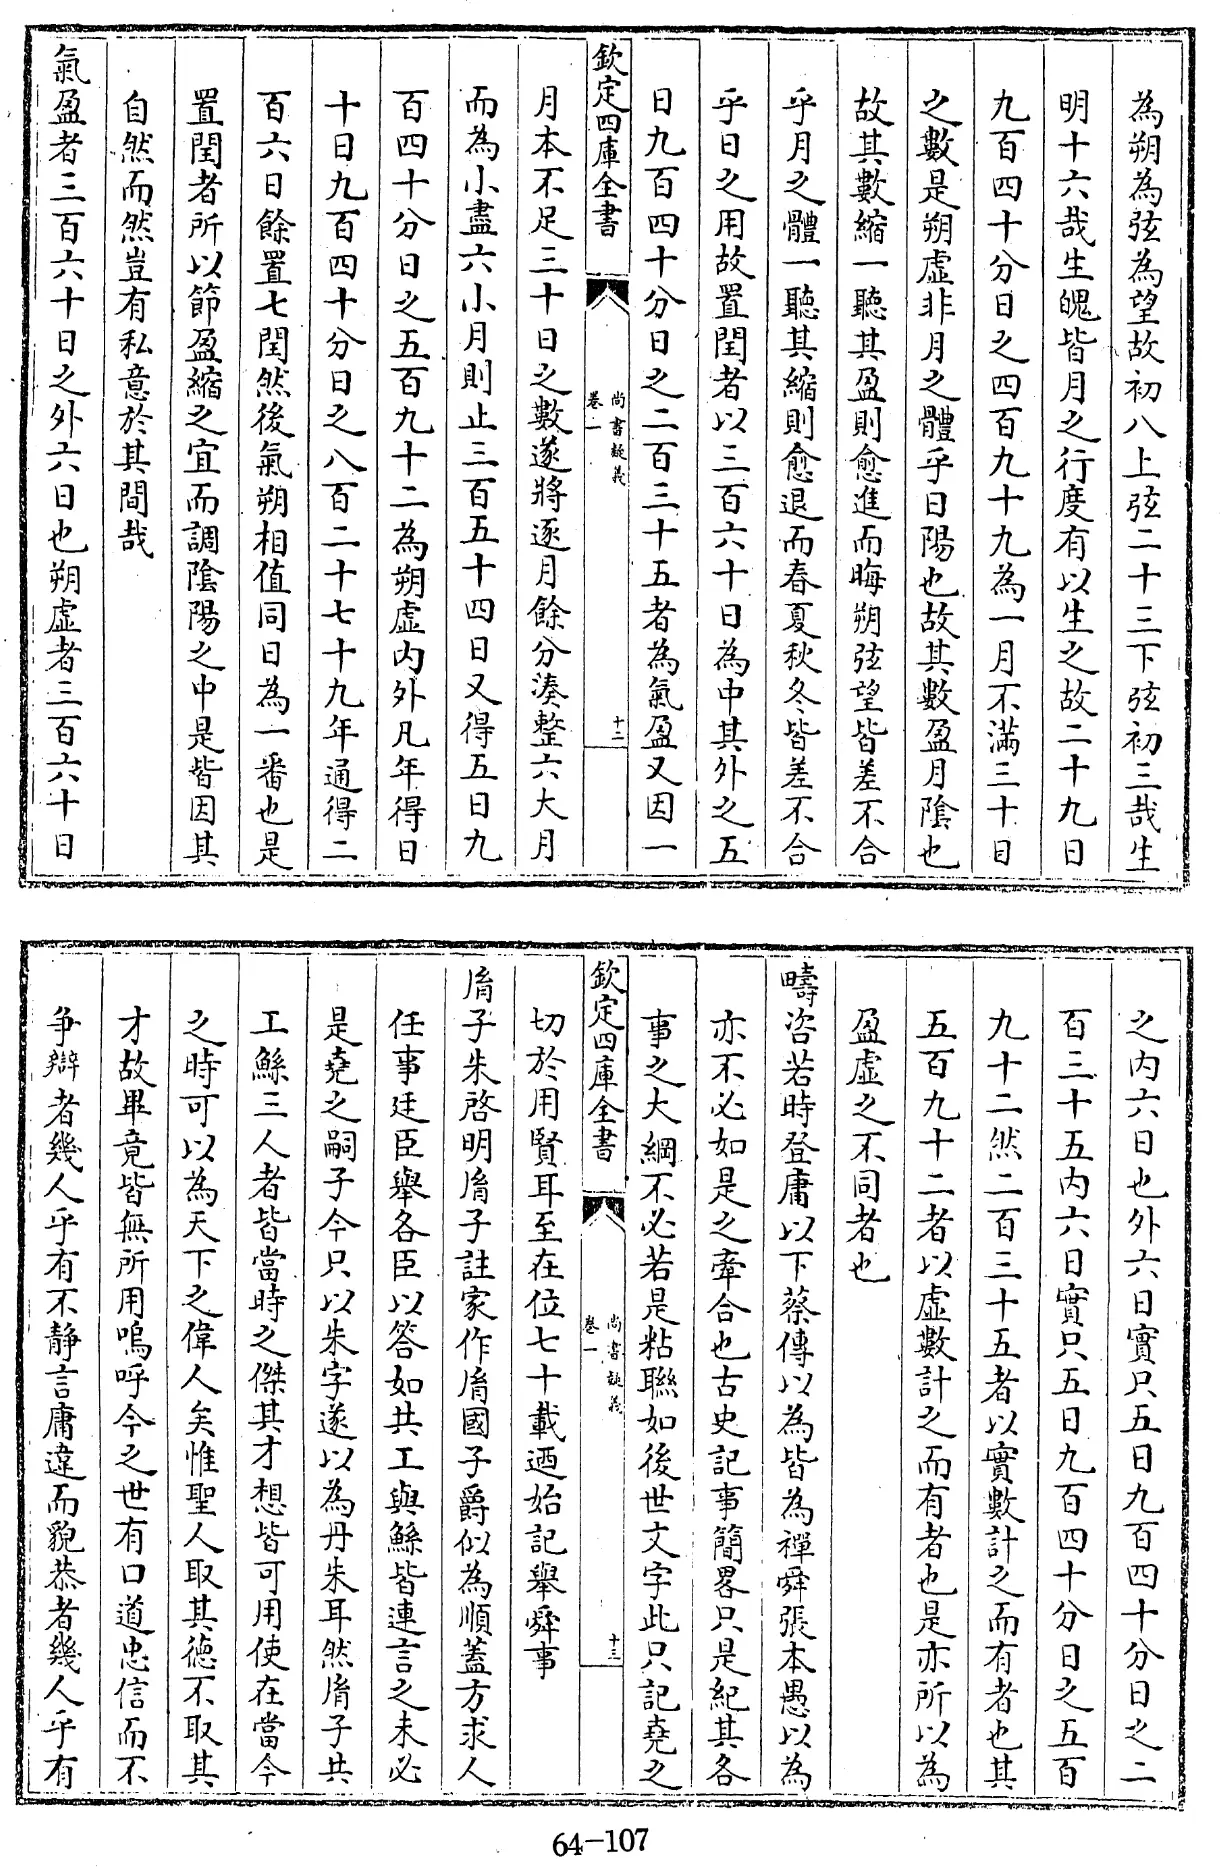 為朔為弦為望故初八上弦二十三下弦初三哉生
明十六哉生魄皆月之行度有以生之故二十九日
九百四十分日之四百九十九為一月不滿三十日
之數是朔虛非月之體乎日陽也故其數盈月陰也
故其數縮一聽其盈則愈進而晦朔弦望皆差不合
乎月之體一聽其縮則愈退而春夏秋冬皆差不合
乎日之用故置閏者以三百六十日為中其外之五
日九百四十分日之二百三十五者為氣盈又因一
欽定四庫全書
尚書疑義
卷一
十二
月本不足三十日之數遂將逐月餘分湊整六大月
而為小盡六小月則止三百五十四日又得五日九
百四十分日之五百九十二為朔虛內外凡年得日
十日九百四十分日之八百二十七十九年通得二
百六日餘置七閏然後氣朔相值同日為一番也是
置閏者所以節盈縮之宜而調陰陽之中是皆因其
自然而然豈有私意於其間哉
氣盈者三百六十日之外六日也朔虛者三百六十日
之內六日也外六日實只五日九百四十分日之二
百三十五內六日實只五日九百四十分日之五百
九十二然二百三十五者以實數計之而有者也其
五百九十二者以虛數計之而有者也是亦所以為
盈虛之不同者也
疇咨若時登庸以下蔡傳以為皆為禪舜張本愚以為
亦不必如是之牽合也古史記事簡畧只是紀其各
事之大綱不必若是粘聯如後世文字此只記堯之
欽定四庫全書
尚書疑義
卷一
十三
切於用賢耳至在位七十載迺始記舉舜事
胤子朱啓明胤子註家作胤國子爵似為順蓋方求人
任事廷臣舉各臣以答如共工與鯀皆連言之未必
是堯之嗣子今只以朱字遂以為丹朱耳然胤子共
工鯀三人者皆當時之傑其才想皆可用使在當今
之時可以為天下之偉人矣惟聖人取其德不取其
才故畢竟皆無所用嗚呼今之世有口道忠信而不
爭辯者幾人乎有不靜言庸違而貌恭者幾人乎有
64-107